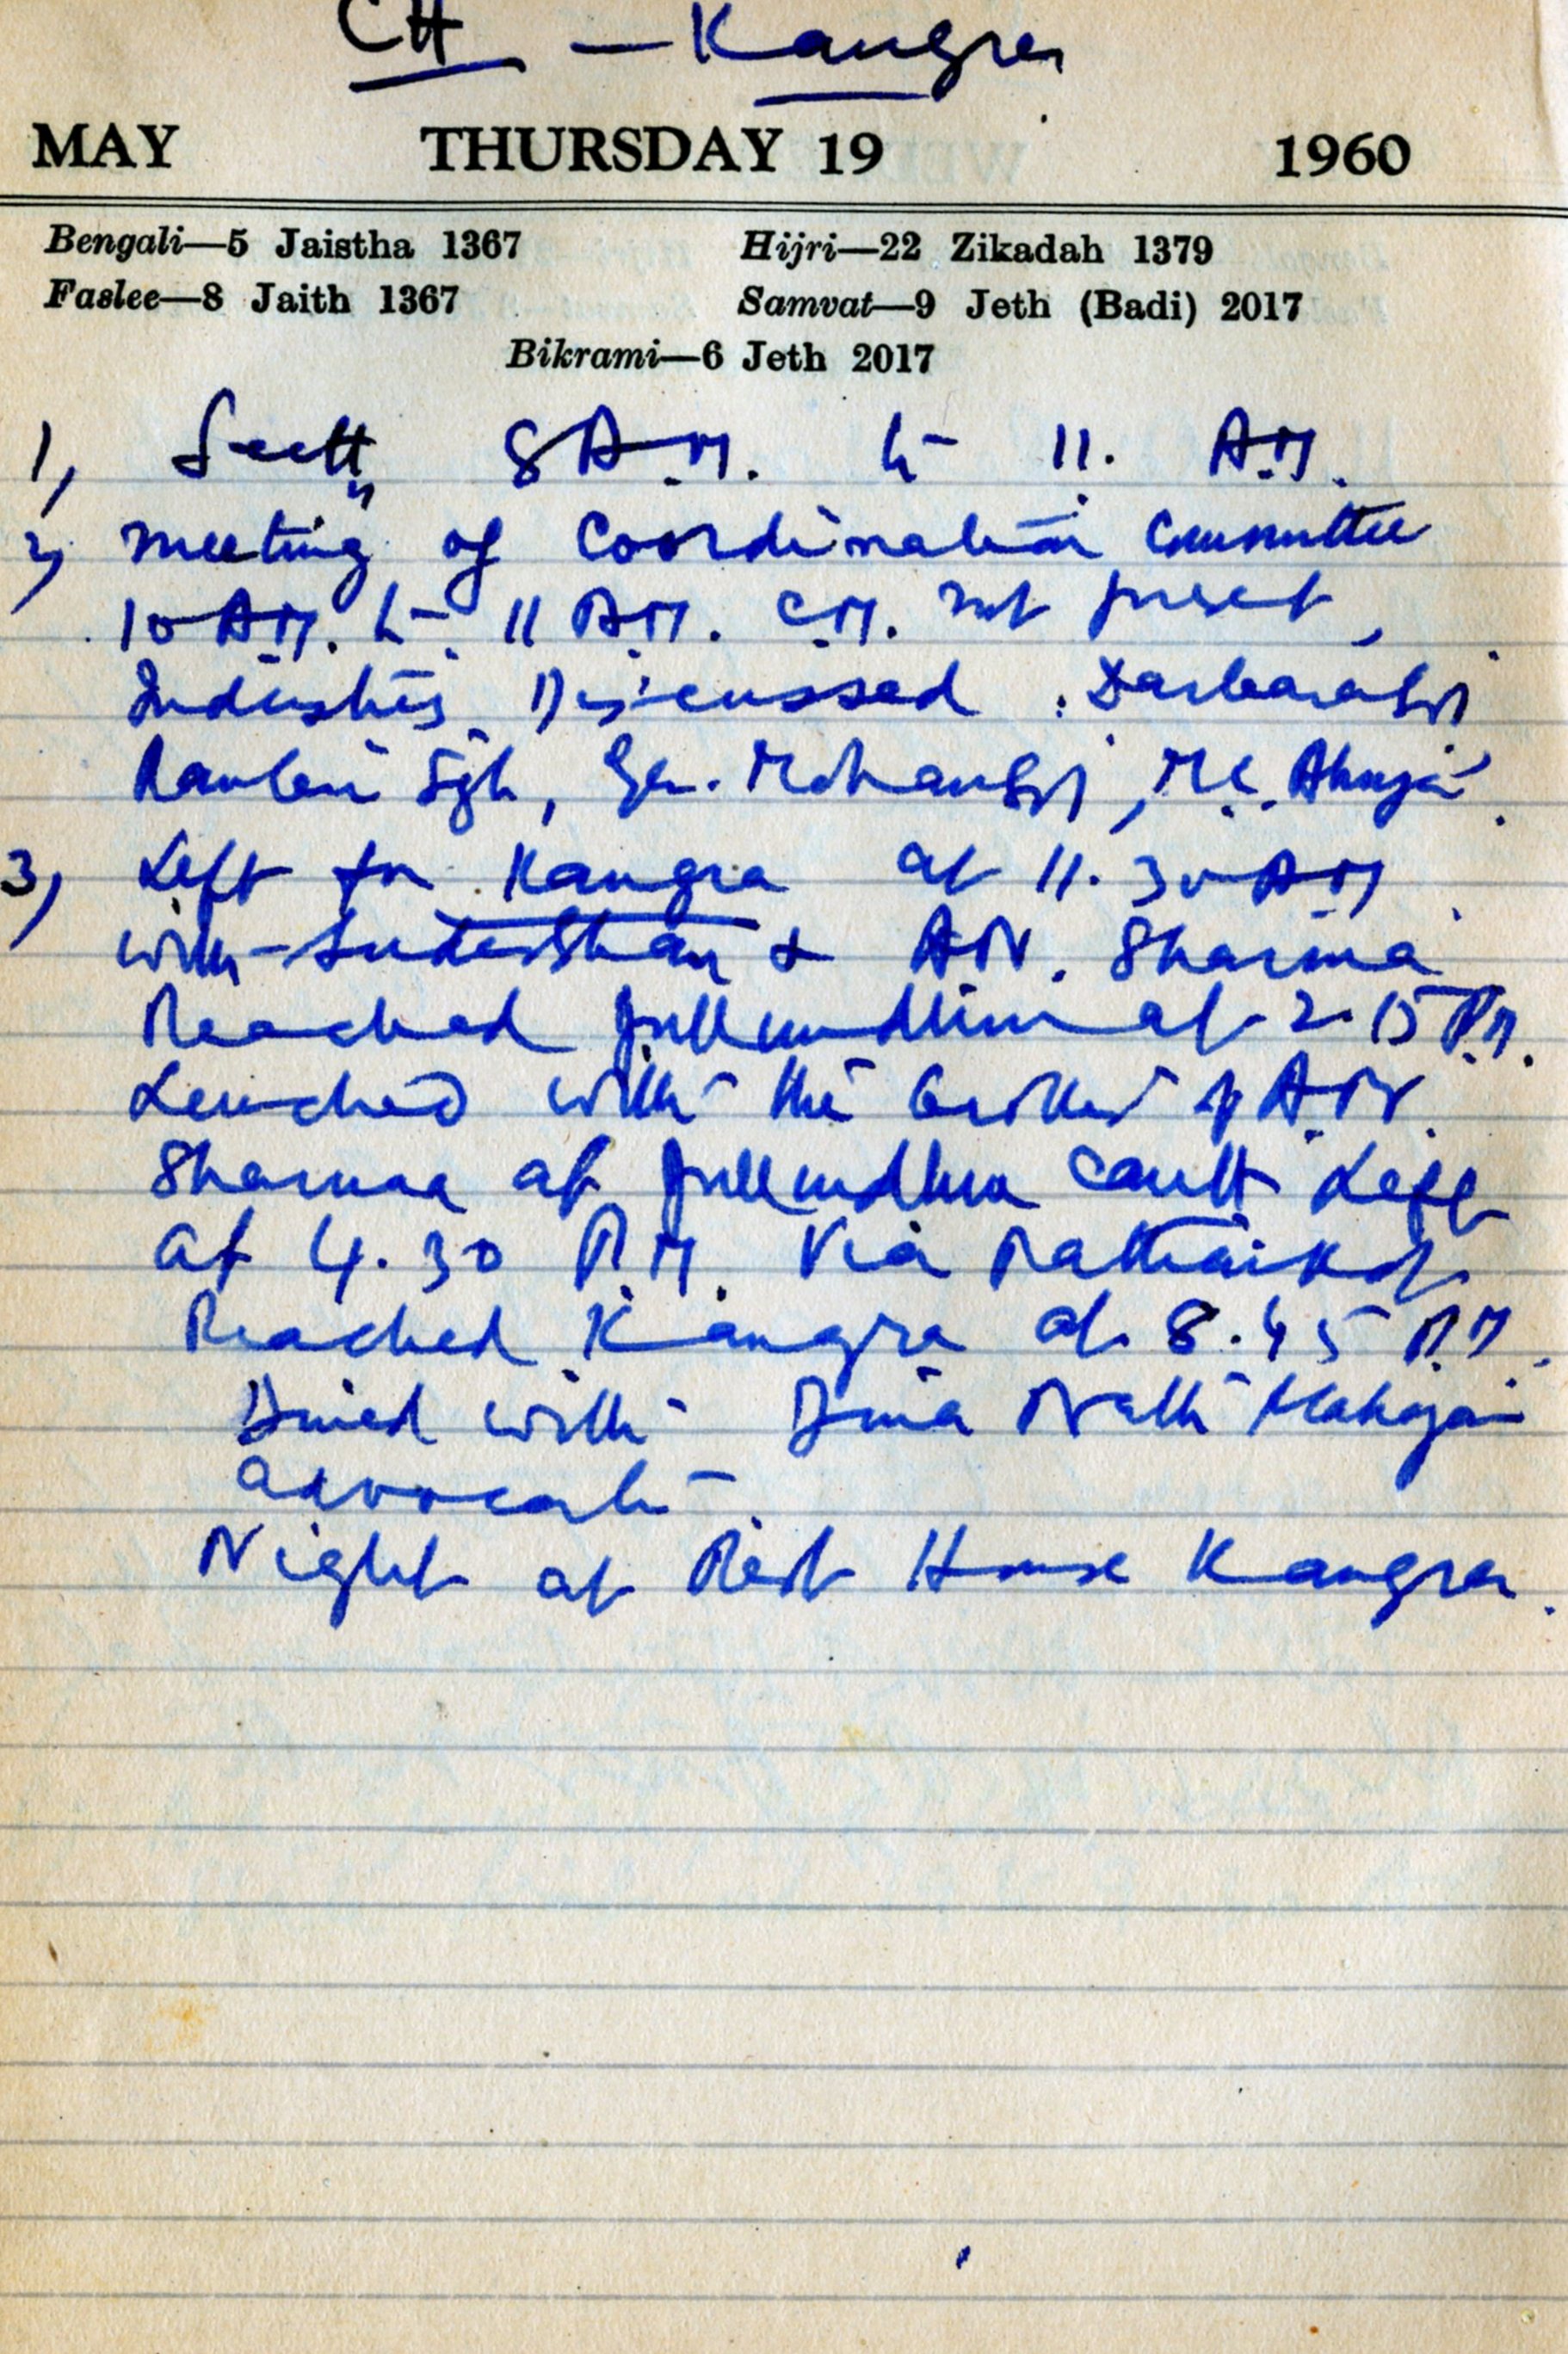 CH — Kangra
MAY THURSDAY 19 1960
Bengali—5 Jaistha 1367 Hijri—22 Zikadah 1379
Faslee—8 Jaith 1367 Samvat—9 Jeth (Badi) 2017
Bikrami—6 Jeth 2017
1, Sectt, 8 A.M. to 11. A.M.
2, Meeting of Coordination Committee
10 A.M. to 11 A.M. C.M. not present,
Industries Discussed. Darbara
Ranbir Sgh, Gen. Mohan , M.L. Ahuja.
3, Left for Kangra at 11.30 AM
with Sudershan & A.N. Sharma
Reached Jullundhur at 2.15 P.M.
Lunched with the brother of A.N.
Sharma at Jullundhur Cantt Left
at 4.30 P.M. Via Pathankot
Reached Kangra at 8.45 P.M.
Dined with Dina Nath Mahajan
advocate
Night at Rest House Kangra.